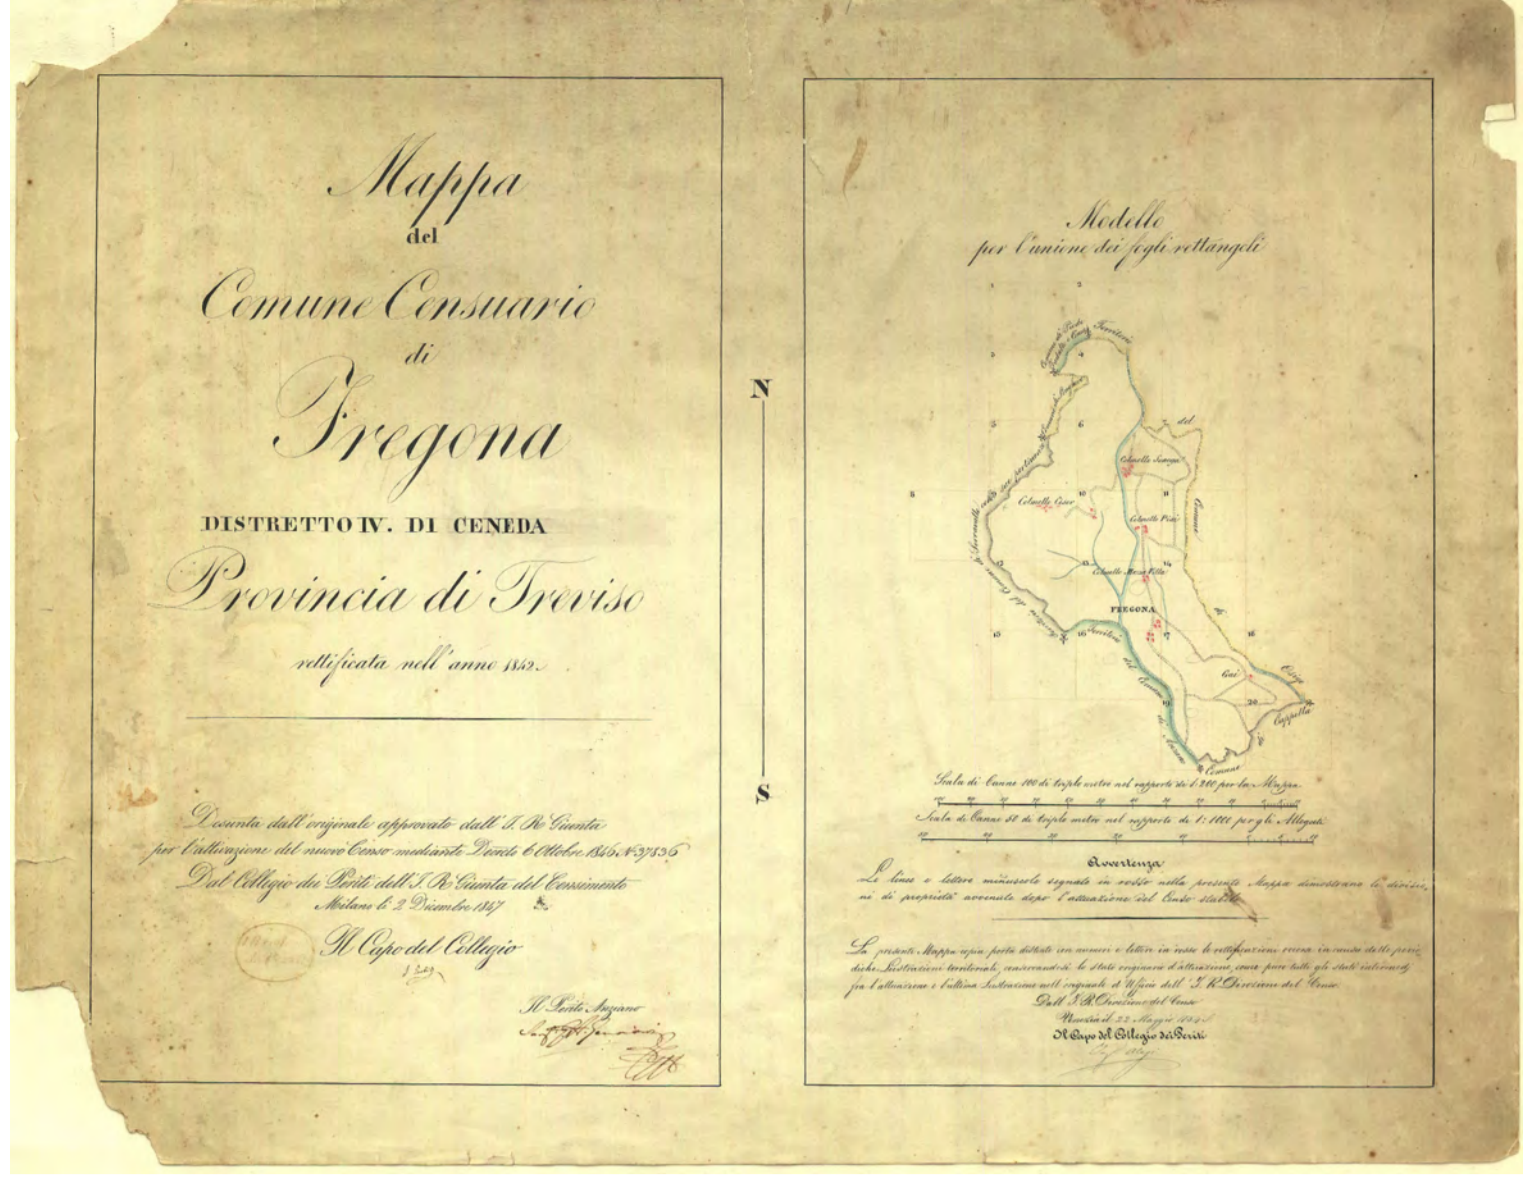 Mappa
del
Comune Censuario
di
Fregona
DISTRETTO IV. DI CENEDA
Provincia di Treviso
rettificata nell'anno 1842.
Desunta dall'originale approvato dall'I. R. Giunta
per l'attivazione del nuovo Censo mediante Decreto 6 Ottobre 1846 N. 37836
Dal Collegio dei Periti dell'I. R. Giunta del Censimento
Milano li 2 Dicembre 1847
Il Capo del Collegio
Il Perito Anziano
N
S
Modello
per l'unione dei fogli rettangoli
2
3
4
Territorio
5
6
del
Colmello
8
10
11
Colmello
Comune
Colmello
13
14
Colmello Meza Villa
di
FREGONA
15
16
Territorio
17
18
del
Comune
Gai
Osigo
19
20
di
Cappella
di
Comune
Territorio del Comune di Serravalle
Scala di Canne 100 di triplo metro nel rapporto di 1: 200 per la Mappa
Scala di Canne 50 di triplo metro nel rapporto di 1: 1000 per gli Allegati
Avvertenza
Le linee e lettere minuscole segnate in rosso nella presente Mappa dimostrano le divisio-
ni di proprietà avvenute dopo l'attuazione del Censo stabile
La presente Mappa copia porta distinte con numeri e lettere in rosso le rettificazioni occorse in causa delle perio-
diche Lustrazioni territoriali, conservandosi lo stato originario d'attivazione, come pure tutti gli stati intermedj
fra l'attivazione e l'ultima Lustrazione nell'originale d'Ufficio dell'I. R. Direzione del Censo
Dall'I. R. Direzione del Censo
Venezia il 22 Maggio
Il Capo del Collegio dei Periti